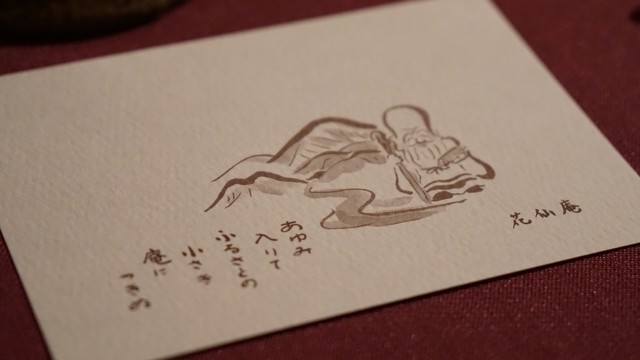 あゆみ
入りて
ふるさとの
小さき
庵に
花仙庵